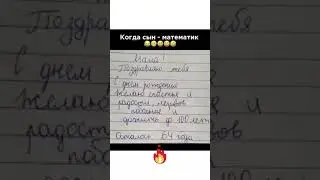 Когда сын - математик
Мама
Поздравляю тебя
С днем рождения
Желаю счастья и
радости,
и
дожить до 100 лет
Осталось 64 года